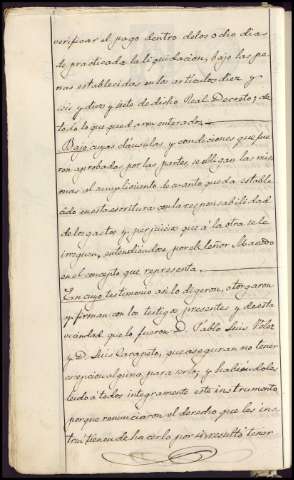 verificar el pago dentro de los ocho dias
de practicada la liquidacion, bajo las pe-
nas establecidas en los articulos diez y
seis y diez y siete de dicho Real Decreto; de
todo lo que quedaron enterados.
Bajo cuyas cláusulas y condiciones que fue-
ron aprobadas por las partes, se obligan las mis-
mas al cumplimiento de cuanto queda estable-
cido en esta escritura con la responsabilidad
de los gastos y perjuicios que á la otra se le
irroguen, entendiéndose por el Señor
en el concepto que representa.
En cuyo testimonio así lo digeron, otorgaron
y firman con los testigos presentes y de esta
vecindad que lo fueron D. Pablo Luis Velez
y D. Luis que aseguran no tener
escepcion alguna para serlo; y habiéndoles
leido á todos integramente este instrumento
porque renunciaron el derecho que les ins-
truí tienen de hacerlo por sí, resultó tener